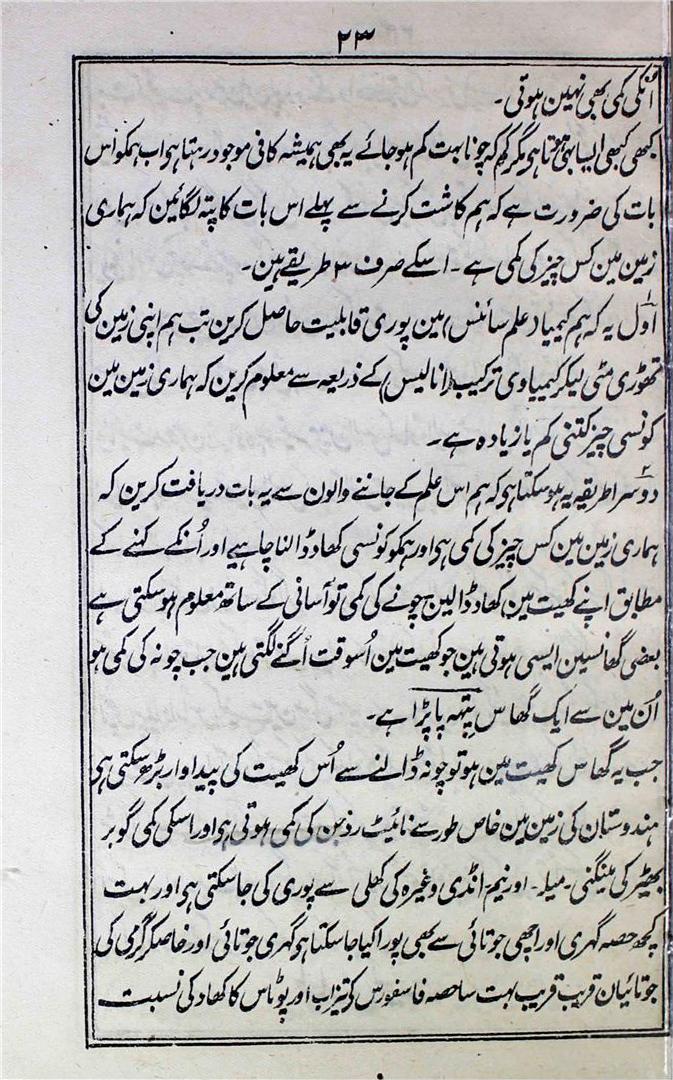 ۲۳
اُنکی کمی بھی نہین ہوتی۔
کبھی کبھی ایسا بھی ہوتا ہی مگر کم کہ چونا بہت کم ہو جائے یہ بھی ہمیشہ کافی موجود رہتا ہو اب ہمکو اس
بات کی ضرورت ہے کہ ہم کاشت کرنے سے پہلے اس بات کا پتہ لگائین کہ ہماری
زمین مین کس چیز کی کمی ہے۔ اسکے صرف ۳ طریقے ہین۔
اوّل یہ کہ ہم کیمیا (علم سائنس) مین پوری قابلیت حاصل کرین تب ہم اپنی زمین کی
تھوڑی مٹی لیکر کیمیاوی ترکیب (انالیس) کے ذریعہ سے معلوم کرین کہ ہماری زمین مین
کونسی چیز کتنی کم یا زیادہ ہے۔
۲
دوسرا طریقہ یہ ہو سکتا ہی کہ ہم اس علم کے جاننے والون سے یہ بات دریافت کرین کہ
ہماری زمین مین کس چیز کی کمی ہی اور ہمکو کونسی کھاد ڈالنا چاہیے اور اُنکے کہنے کے
مطابق اپنے کھیت مین کھاد ڈالین چونے کی کمی تو آسانی کے ساتھ معلوم ہو سکتی ہے
بعضی گھانسین ایسی ہوتی ہین جو کھیت مین اُسوقت اُگنے لگتی ہین جب چونہ کی کمی ہو
اُن مین سے ایک گھاس پتہہ پاپڑا ہے۔
جب یہ گھاس کھیت مین ہو تو چونہ ڈالنے سے اُس کھیت کی پیداوار بڑھ سکتی ہی
ہندوستان کی زمین مین خاص طور سے نائیٹروجن کی کمی ہوتی ہی اور اسکی کمی گوبر
بھیڑ کی مینگنی۔ میلا۔ اور نیم۔ انڈی وغیرہ کی کھلی سے پوری کی جا سکتی ہی اور بہت
کچھ حصہ گہری اور اچھی جوتائی سے بھی پورا کیا جا سکتا ہو گہری جوتائی اور خاصکر گرمی کی
جوتائیان قریب قریب بہت سا حصہ فاسفورس کی تیزاب اور پوٹاس کا کھاد کی نسبت